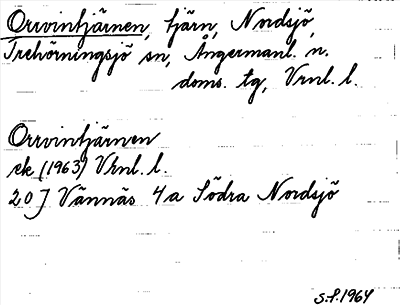 Orrvintjärnen, tjärn, Nordsjö,
Trehörningsjö sn, Ångermanl. n.
doms. tg, Vrnl. l.
Orrvintjärnen
ek (1963) Vrnl. l.
20 J Vännäs 4a Södra Nordsjö
S.F. 1964